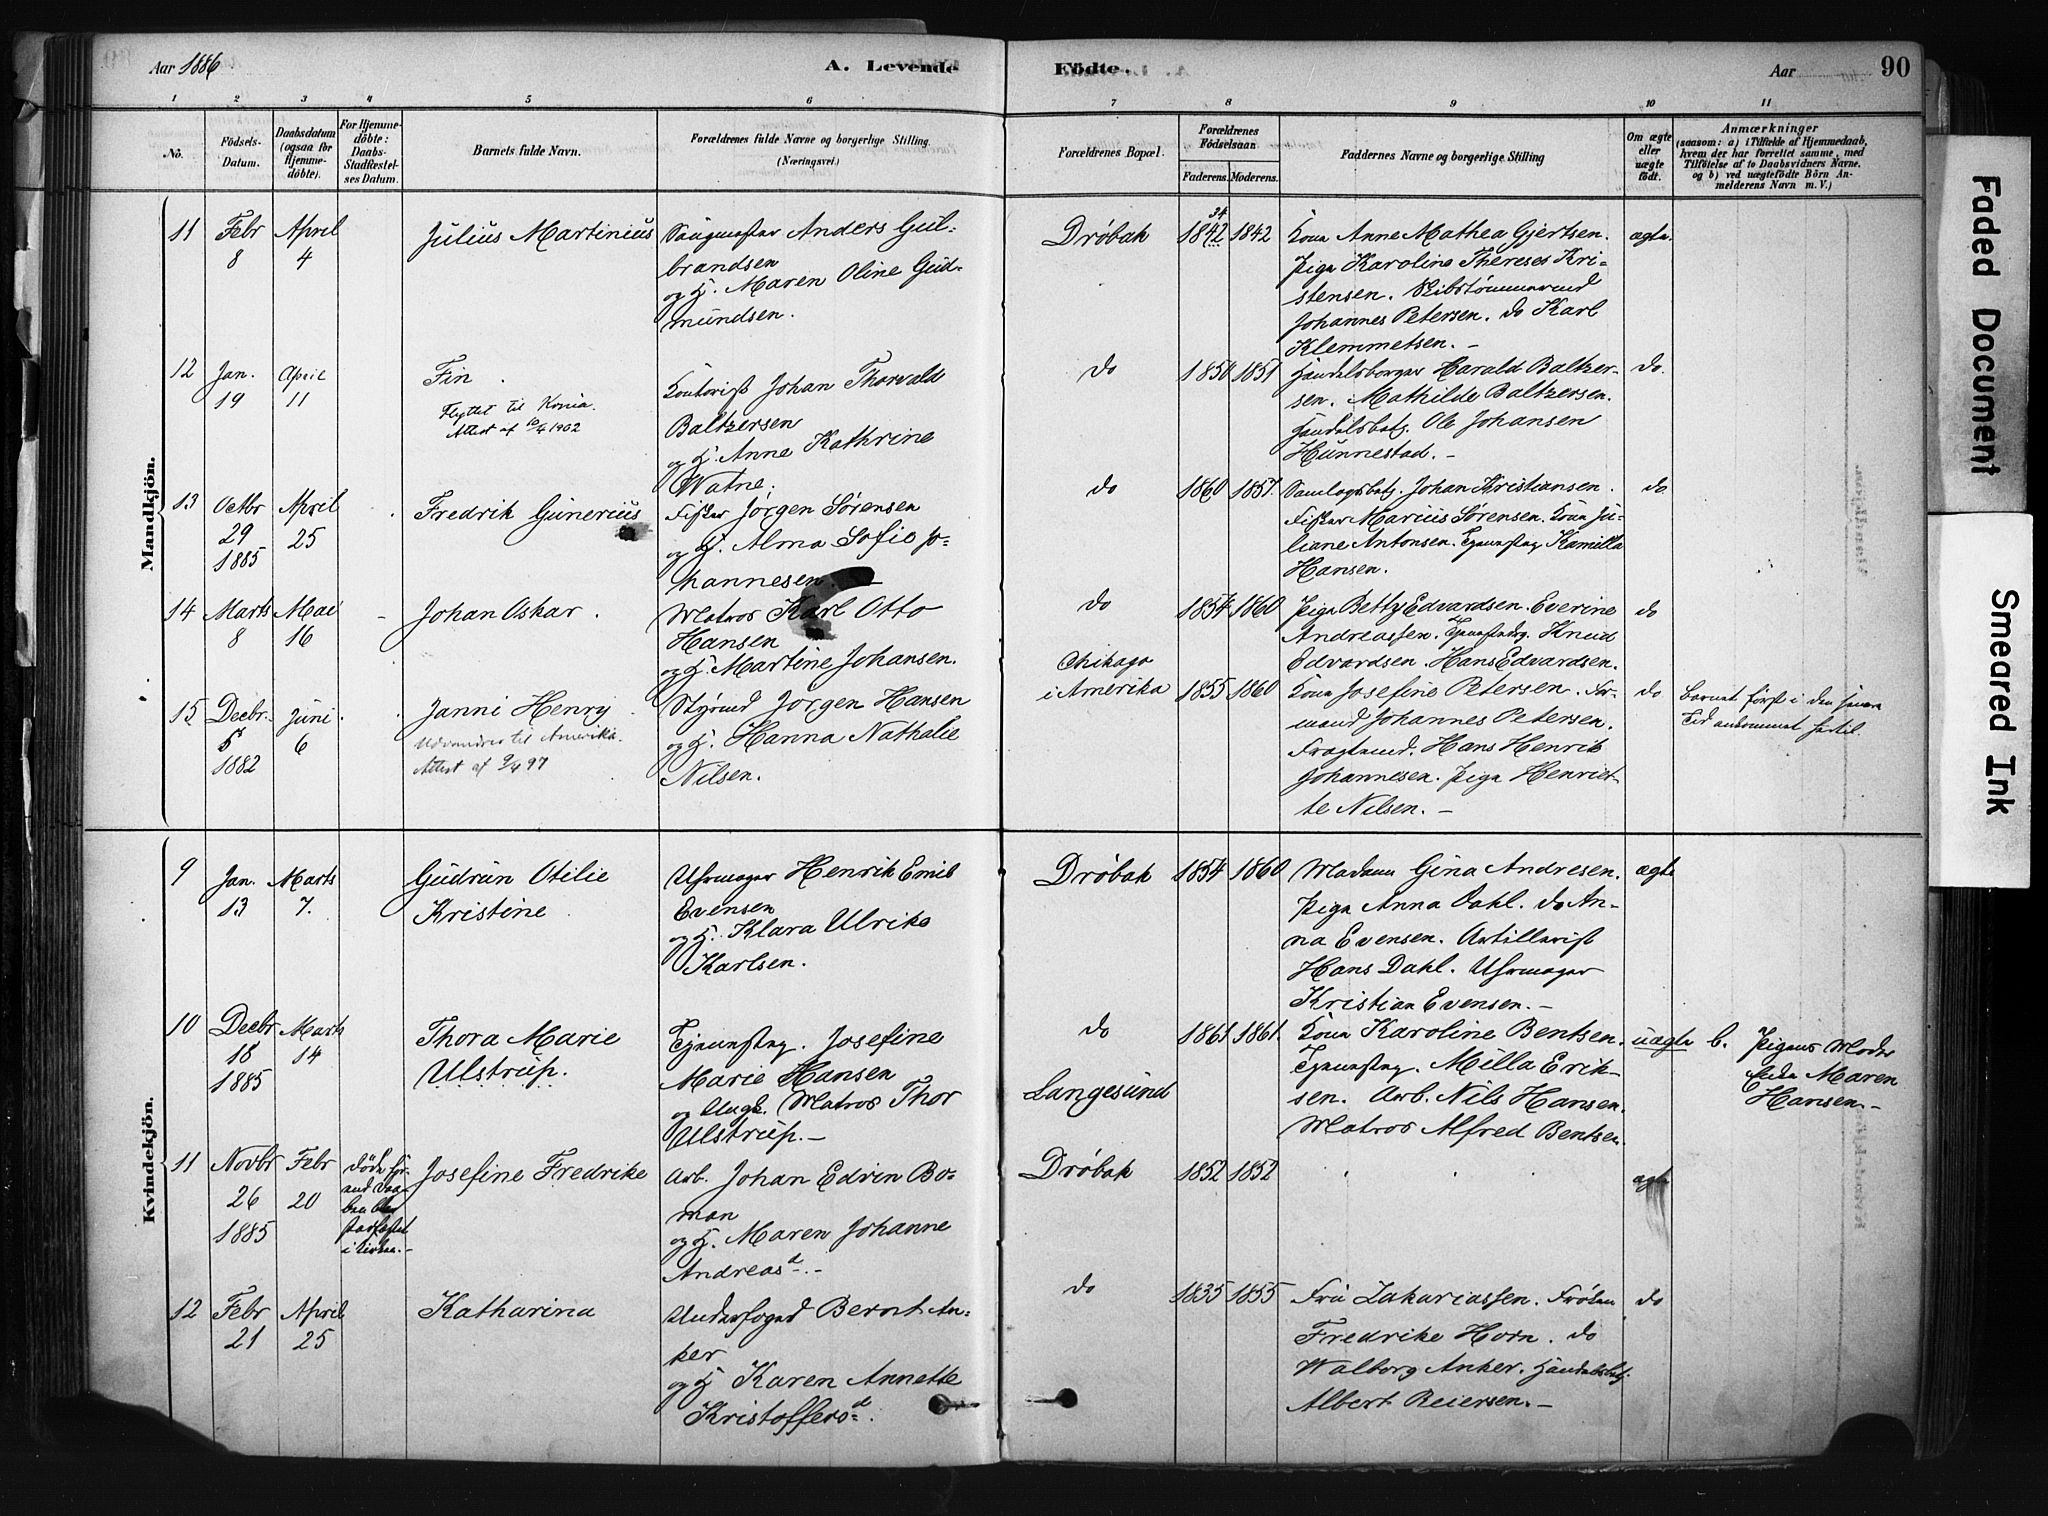 Aar 1886
A. Levende
Födte.
Aar
90
1 2 3 4 5 6 7 8 9 10 11
No.
Födsels-
Datum.
Daabsdatum
(ogsaa for
Hjemme-
döbte).
For Hjemme-
döbte:
Daabs-
Stadfæstel-
ses Datum.
Barnets fulde Navn.
Forældrenes fulde Navne og borgerlige Stilling.
(Næringsvei.)
Forældrenes Bopæl.
Forældrenes
Födselsaar.
Faderens. Moderens.
Faddernes Navne og borgerlige Stilling
Om ægte
eller
uægte
födt.
Anmærkninger
(saasom: a) i Tilfælde af Hjemmedaab,
hvem der har forrettet samme, med
Tilföielse af to Daabsvidners Navne,
og b) ved uægtefödte Börn An-
melderens Navn m. V.)
Mandkjön.
11
Febr
8
April
4
Julius Martinius
Anders Gul-
brandsen
og H. Maren Oline Gud-
mundsen.
Drøbak
34
1842
1842
Kona Anne Mathea Gjertsen.
Pige Karoline Therese Kri-
stensen. Skibstømmermand
Johannes Petersen. do Karl
Klemmetsen. —
ægte.
12
Jan.
19
April
11
Fin
Flyttet til Kr.ia.
Attest af 10/4 1902
Kontorist Johan Thorvald
Baltzersen
og H. Anne Kathrine
Watne.
do
1850
1851
Handelsborger Harald Baltzer-
sen. Mathilde Baltzersen.
Handelsbetj. Ole Johansen
Hunnestad. —
do.
13
Octbr
29
1885
April
25
Fredrik Gunerius
Fisker Jørgen Sørensen
og H. Alma Sofie Jo-
hannesen. —
do
1860
1857.
Samlagsbetj. Johan Kristiansen.
Fisker Marius Sørensen. Kona Ju-
liane Antonsen. Tjenestpg Kamilla
Hansen.
do
14
Marts
8
Mai
16
Johan Oskar.
Matros Karl Otto
Hansen
og H. Martine Johansen.
do
1854
1860
Pige Betty Edvardsen. Everine
Andreassen. Knud
Edvardsen. Hans Edvardsen.
do
15
Decbr.
5
1882
Juni
6
Janni Henry
Udvandrer til Amerika.
Attest af 9/4 97
Styrmd Jørgen Hansen
og H. Hanna Nathalie
Nilsen.
Chikago
i Amerika
1855
1860
Kona Josefine Petersen. For-
mand Johannes Petersen.
Hans Henrik
Johannesen. Pige Henriet-
te Nilsen. —
do
Barnet først i den senere
Tid ankommet hertil.
Kvindekjön.
9
Jan.
13
Marts
7.
Gudrun Otilie
Kristine
Uhrmager Henrik Emil
Evensen
og H. Klara Ulrike
Karlsen.
Drøbak
1854
1860
Madam Gina Andresen.
Pige Anna Dahl. do An-
na Evensen. Artillerist
Hans Dahl. Uhrmager
Kristian Evensen. —
ægte
10
Decbr
18
1885
Marts
14
Thora Marie
Ulstrup.
Tjenestpg. Josefine
Marie Hansen
og Ungk. Matros Thor
Ulstrup. —
do
Langesund
1861
1861.
Kona Karoline Bentsen.
Tjenestpg. Milla Erik-
sen. Arb. Nils Hansen.
Matros Alfred Bentsen.
uægte
b. Pigens Moder
Enke Maren
Hansen. —
11
Novbr
26
1885
Febr
20
døde for-
end Daa-
ben blev
stadfæstet
i Kirken. —
Josefine Fredrike
Arb. Johan Edvin Bo-
man
og H. Maren Johanne
Andreasd. —
Drøbak
1852
1852
ægte
12
Febr
21
April
25
Katharina
Underfoged Bernt An-
ker
og H Karen Annette
Kristoffersd.
do
1835
1855
Fru Zakariassen. Frøken
Fredrike Horn. do
Walborg Anker. Handelsbetj.
Albert Reiersen. —
do
Faded Document
Smeared Ink